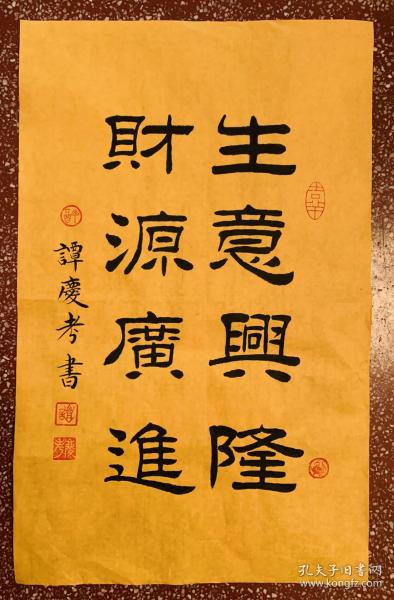 生意興隆
財源廣進
譚慶考書
孔夫子旧书网
www.kongfz.com